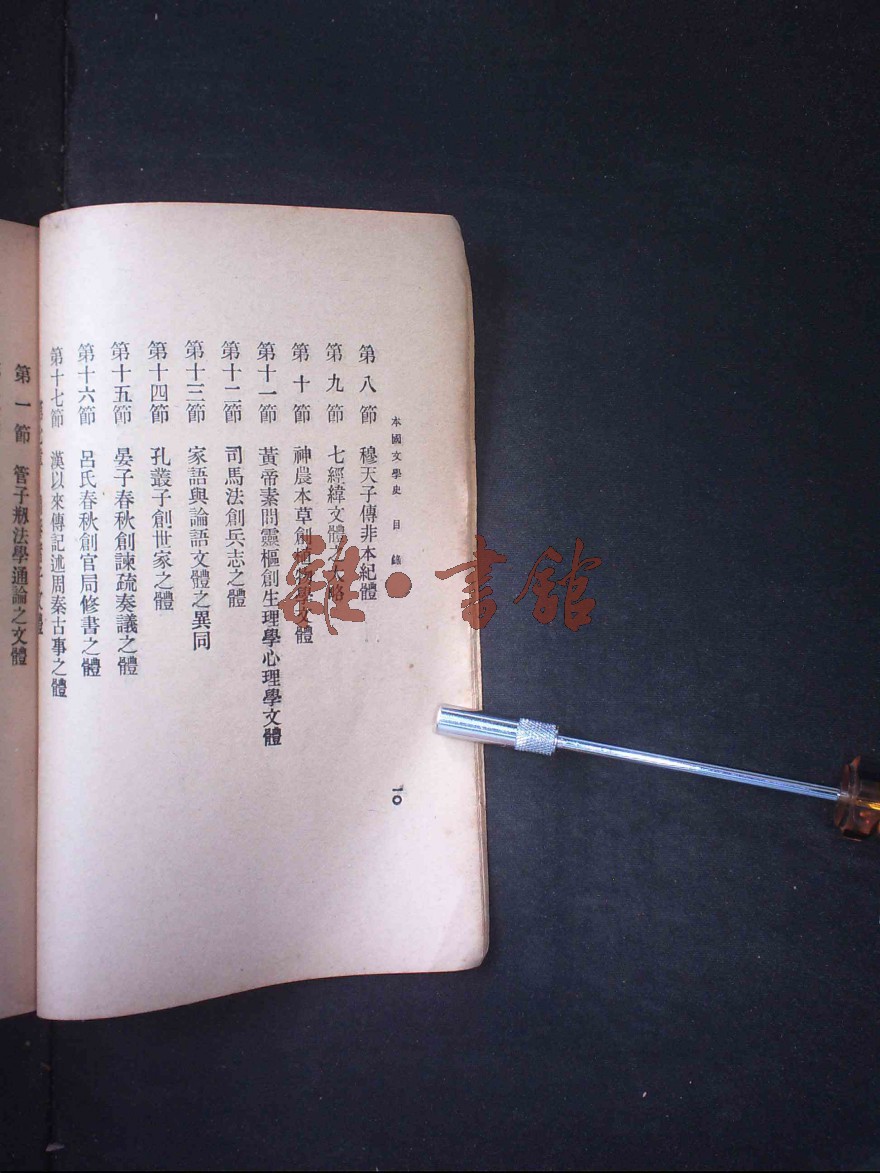 本國文學史　目錄
10
第八節　穆天子傳非本紀體
第九節　七經緯文體之大略
第十節　神農本草創植物學文體
第十一節　黃帝素問靈樞創生理學心理學文體
第十二節　司馬法創兵志之體
第十三節　家語與論語文體之異同
第十四節　孔叢子創世家之體
第十五節　晏子春秋創諫疏奏議之體
第十六節　呂氏春秋創官局修書之體
第十七節　漢以來傳記述周秦古事之體
第一節　管子剏法學通論之文體
雜·書館